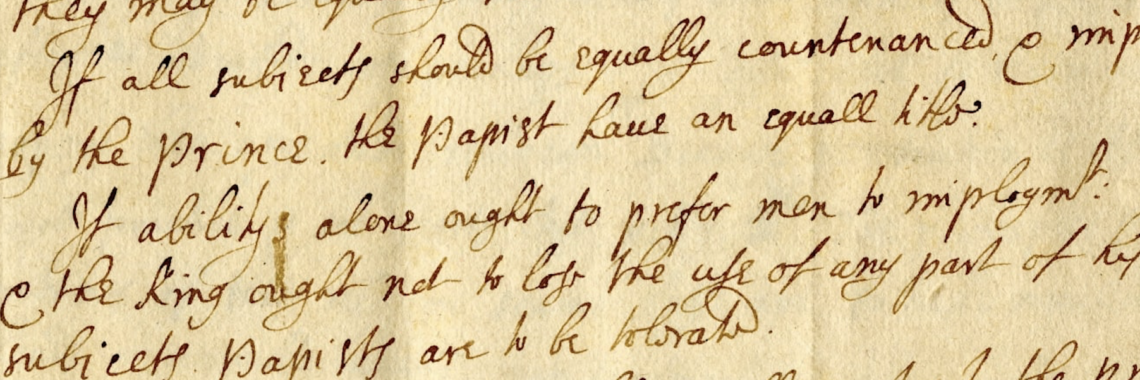 they may be
If all subiects should be equally countenanced & imp
by the Prince. the Papist have an equall title.
If ability alone ought to prefer men to imploymt:
& the King ought not to lose the use of any part of his
subiects Papists are to be tolerated.
the pr